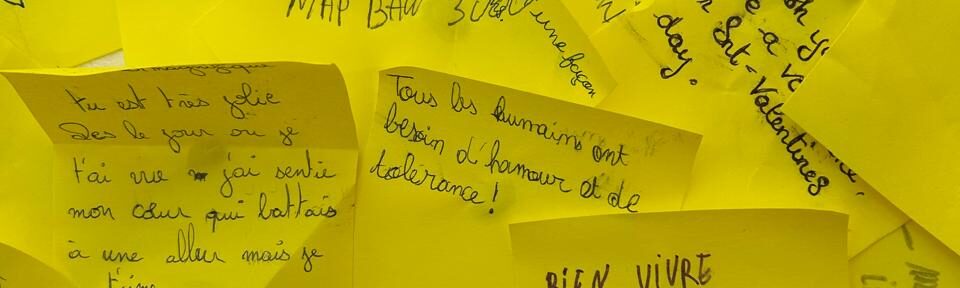 MAP BAW
une façon
day.
St-Valentines
tu est très jolie
Dès le jour où je
t'ai vue j'ai sentie
mon cœur qui battais
à une allur mais je
t'aime
Tous les humains ont
besoin d'hamour et de
tolérance!
BIEN VIVRE